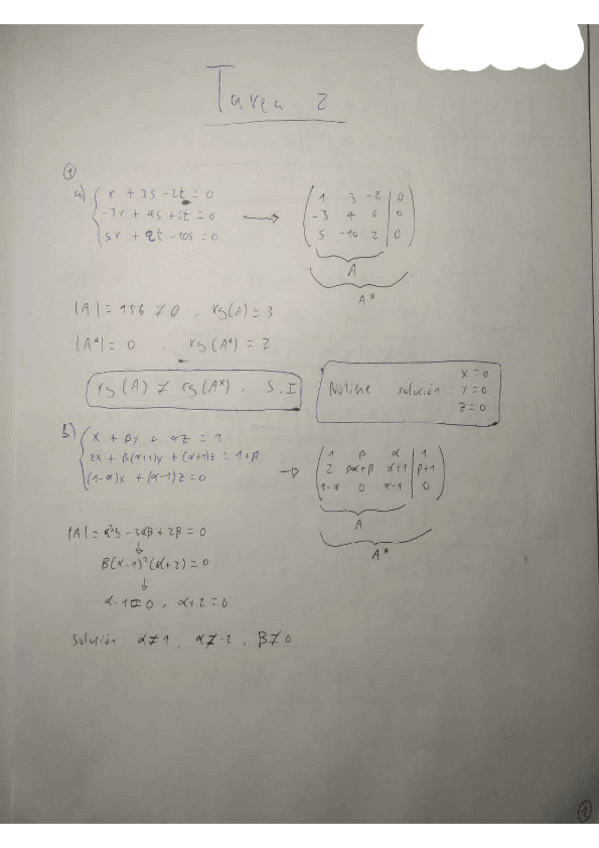 Tarea 2
①
a) { r + 3s - 2t = 0
-3r + 4s + 6t = 0
5r + 2t - 10s = 0
→ ( 1 3 -2 | 0
-3 4 6 | 0
5 -10 2 | 0 )
A
A*
|A| = 156 ≠ 0 , rg(A) = 3
|A*| = 0 , rg(A*) = 2
rg(A) ≠ rg(A*) . S.I
No tiene solución : x=0
y=0
z=0
b) { x + βy + αz = 1
2x + β(α+1)y + (α+1)z = 1+β
(1-α)x + (α-1)z = 0
→ ( 1 β α | 1
2 βα+β α+1 | β+1
1-α 0 α-1 | 0 )
A
A*
|A| = α³β - 3αβ + 2β = 0
↓
β(α-1)²(α+2) = 0
↓
α-1=0 , α+2=0
Solución: α≠1 , α≠-2 , β≠0
①